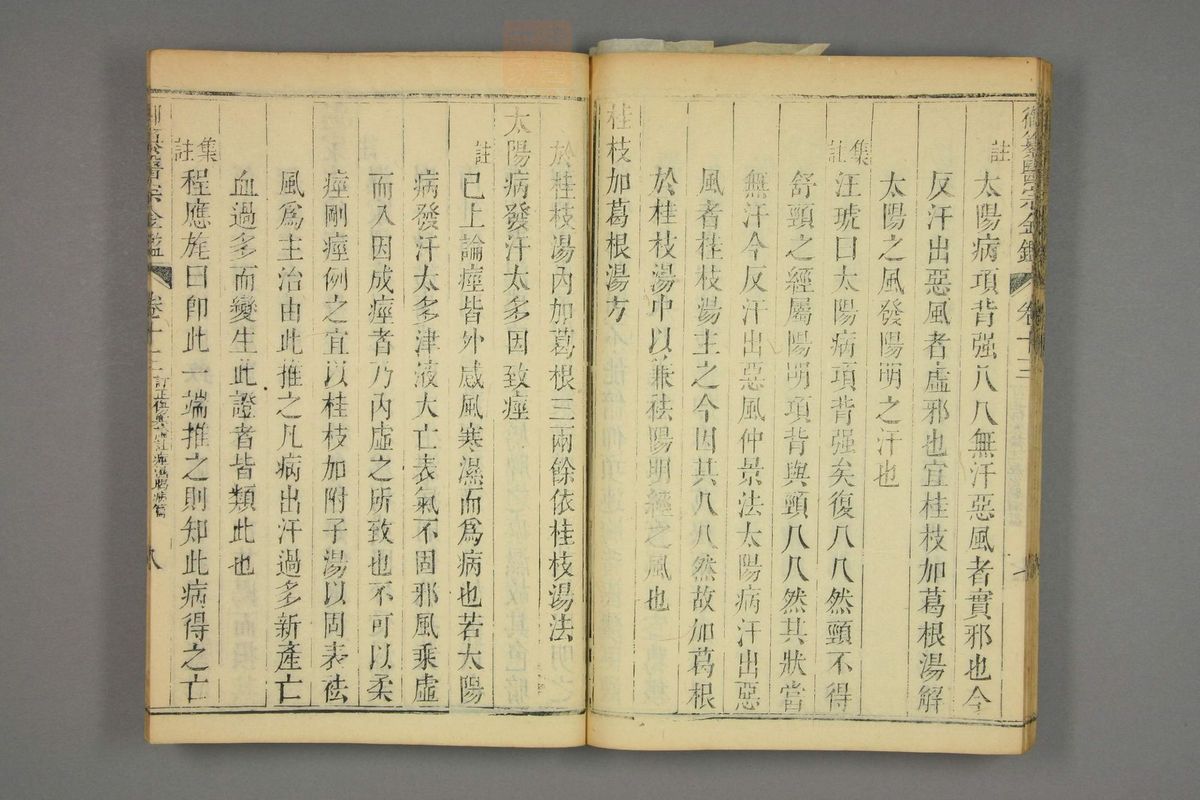 御纂醫宗金鑑 卷十三 七
註
太陽病項背强八八無汗惡風者實邪也今
反汗出惡風者虛邪也宜桂枝加葛根湯解
太陽之風發陽明之汗也
集註
汪琥曰太陽病項背强矣復八八然頸不得
舒頸之經屬陽明項背與頸八八然其狀當
無汗今反汗出惡風仲景法太陽病汗出惡
風者桂枝湯主之今因其八八然故加葛根
於桂枝湯中以兼祛陽明經之風也
桂枝加葛根湯方
於桂枝湯內加葛根三兩餘依桂枝湯法
太陽病發汗太多因致痙
註
已上論痙皆外感風寒濕而爲病也若太陽
病發汗太多津液大亡表氣不固邪風乘虛
而入因成痙者乃內虛之所致也不可以柔
痙剛痙例之宜以桂枝加附子湯以固表祛
風爲主治由此推之凡病出汗過多新產亡
血過多而變生此證者皆類此也
集註
程應旄曰卽此一端推之則知此病得之亡
醫宗金鑑 卷十三 八